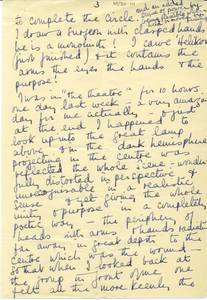 3
to complete the circle.
I draw a surgeon with clasped hands
he is a monolith! I carve Helikon
(just finished) & it contains the
arms the eyes the hands & the
purpose!
I was in "the theatre" for 10 hours
one day last week – a very amazing
day for me actually
at the end I happened to
look up into the great lamp
above, & in the dark hemisphere
projecting in the centre was
reflected the whole scene – wonder-
fully distorted in perspective &
unrecognisable in a realistic
sense & yet giving the whole
unity & purpose in a completely
poetic way – the periphery of
heads with arms & hands radiating
far away in great depth to the
centre which was the wound –
so that when I looked back at
the group in front of me one
felt all the more keenly the